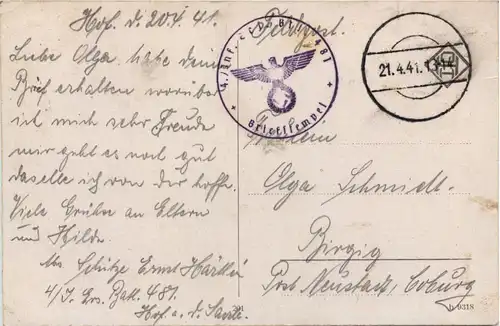 Hof. d. 20.4. 41.
Liebe Olga habe deinen
Brief erhalten worüber
ich mich sehr Freude
mir geht es noch gut
daselle ich von der hoffe.
Viele Grüße an Eltern
und Hilde.
Abs Schütze Ernst
4/J. Ers. Batl. 481.
Hof a. d. Saale
Feldpost.
Briefstempel
21.4.41.
Fräulein
Olga Schmidt.
Birgig
Post Neustadt, Coburg
b 0318